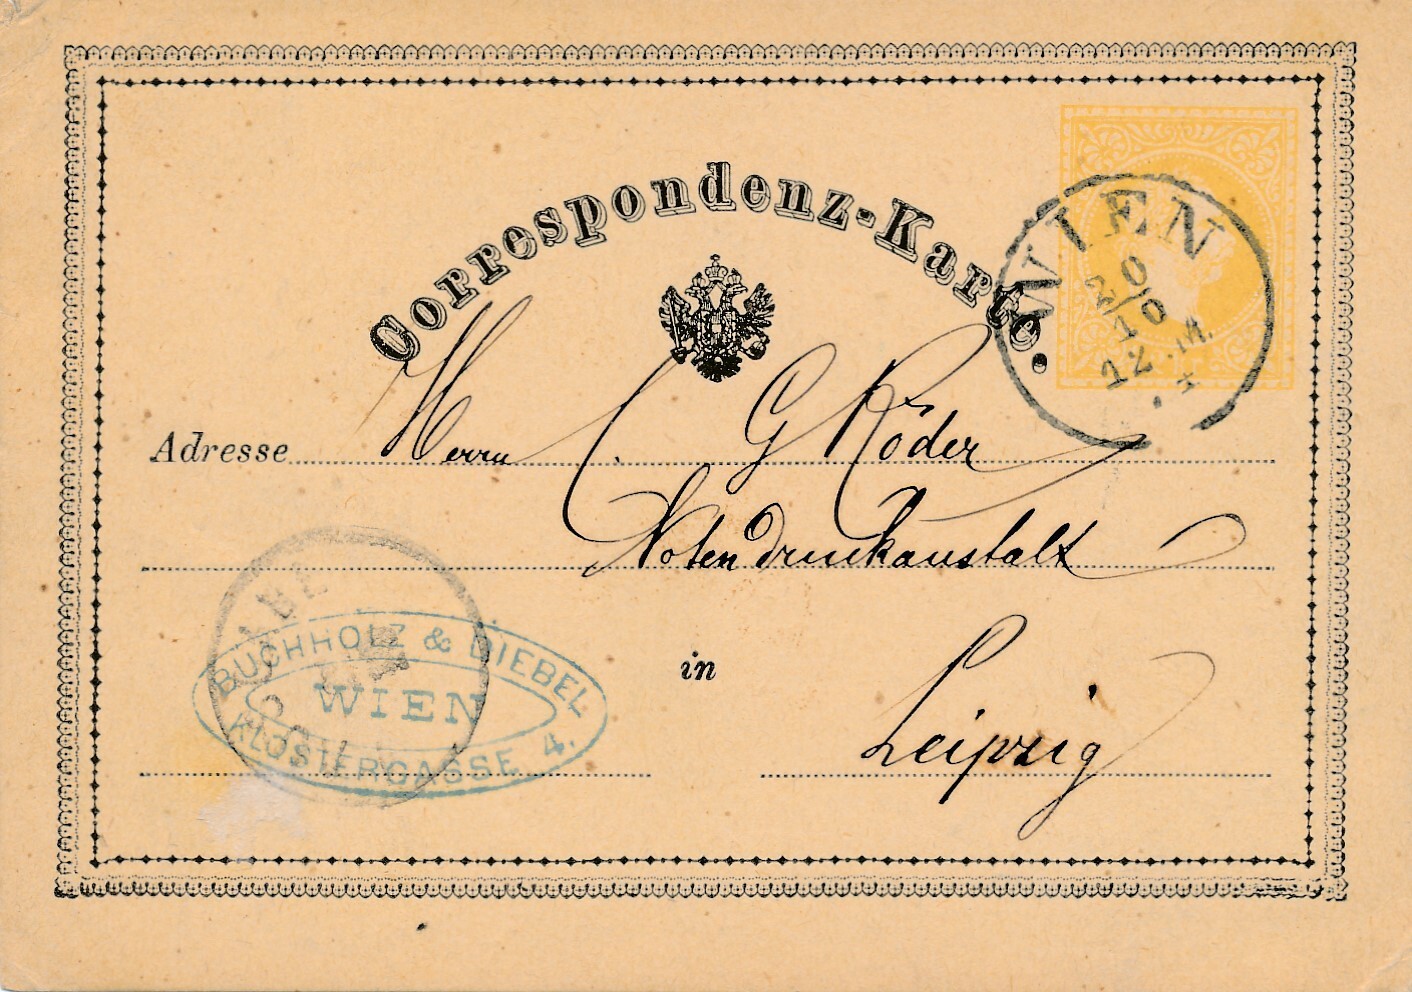 Correspondenz-Karte.
WIEN
20/10
12.M.
Adresse Herrn C. G Röder
Notendruckanstalt
in Leipzig
BUCHHOLZ & DIEBEL
WIEN
KLOSTERGASSE 4.